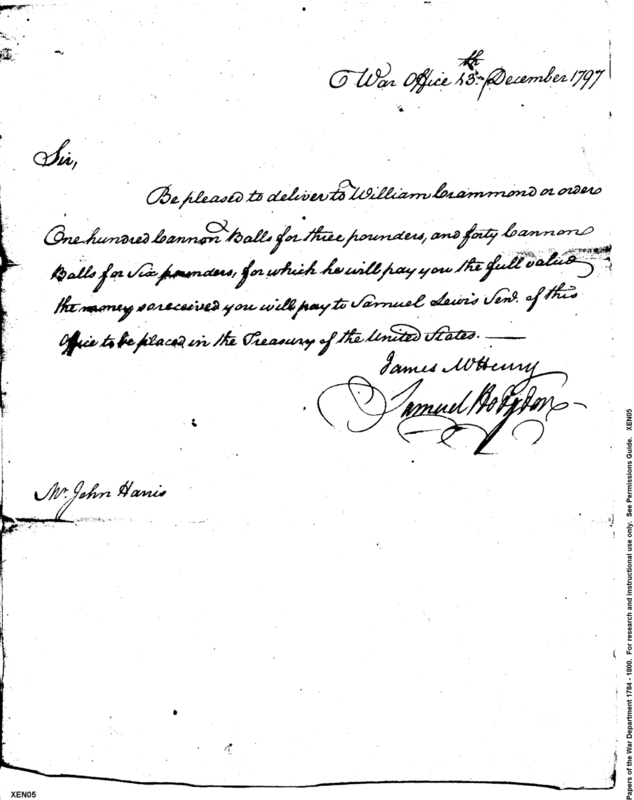 War Office 13th December 1797
Sir,
Be pleased to deliver to William Crammond or order
One hundred Cannon Balls for three pounders, and forty Cannon
Balls for Six pounders, for which he will pay you the full value
the money so received you will pay to Samuel Lewis Senr. of this
office to be placed in the Treasury of the United States.
James McHenry
Samuel Hodgdon
Mr. John Harris
XEN05
Papers of the War Department 1784 - 1800. For research and instructional use only. See Permissions Guide. XEN05